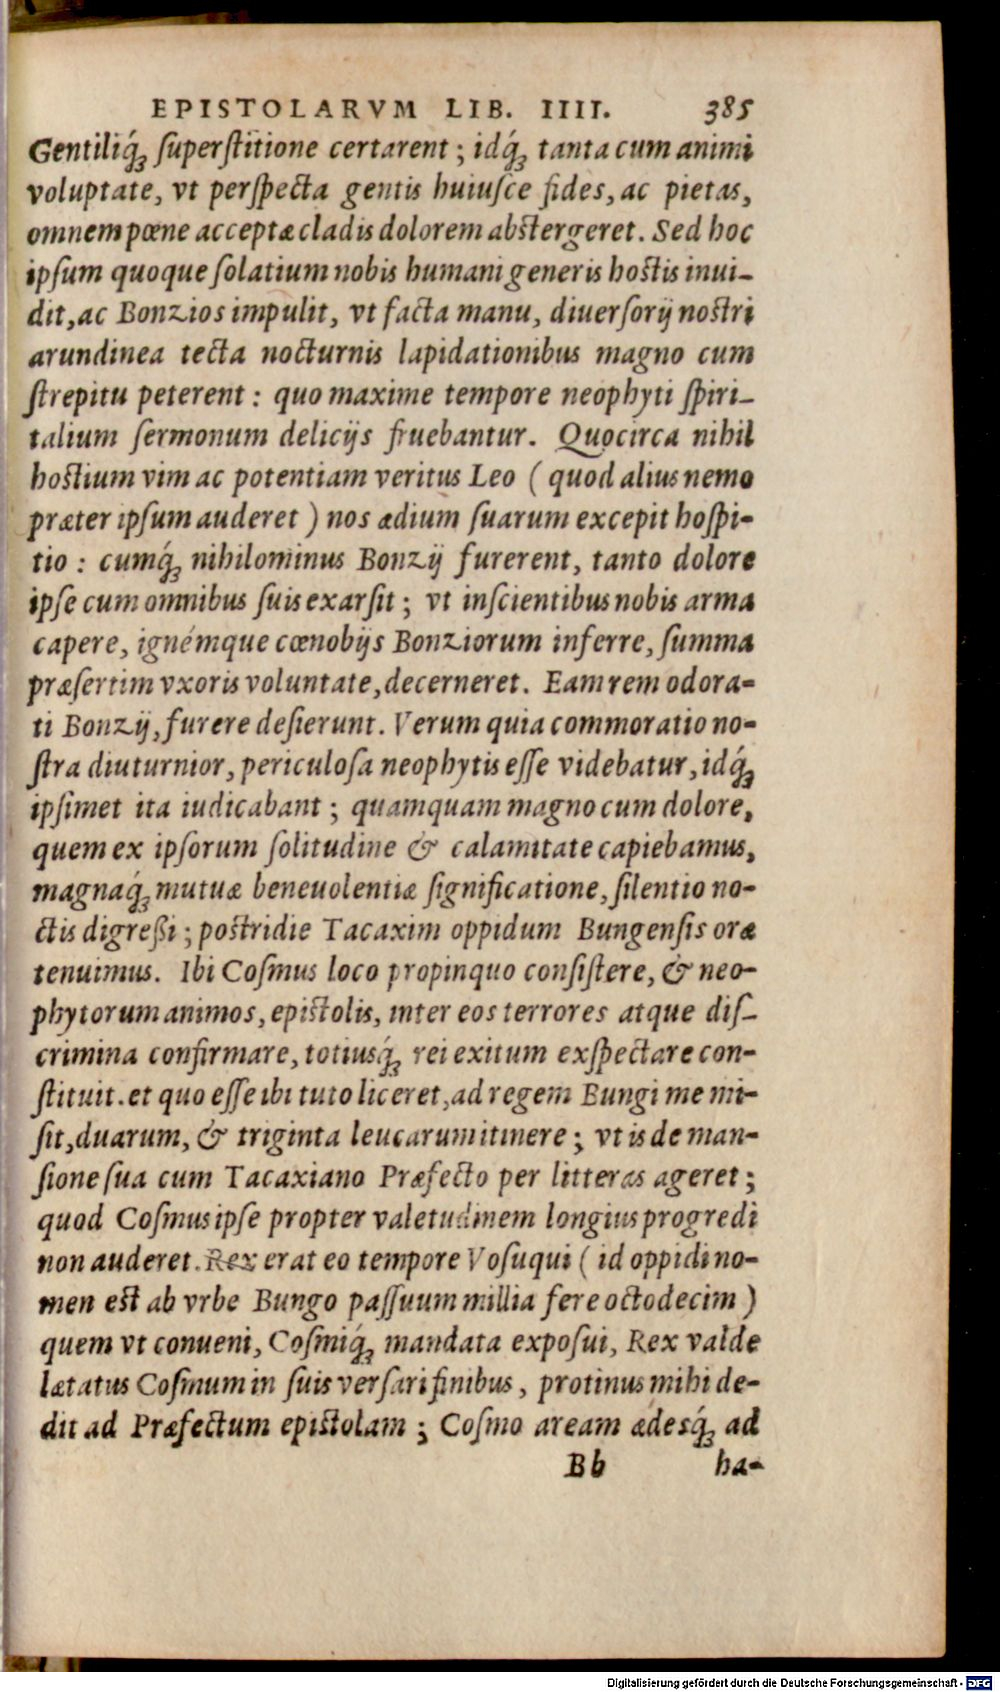 EPISTOLARVM LIB. IIII. 385
Gentiliq́; ſuperſtitione certarent; idq́; tanta cum animi
voluptate, vt perſpecta gentis huiuſce fides, ac pietas,
omnem pœne acceptæ cladis dolorem abſtergeret. Sed hoc
ipſum quoque ſolatium nobis humani generis hoſtis inui-
dit, ac Bonzios impulit, vt facta manu, diuerſorij noſtri
arundinea tecta nocturnis lapidationibus magno cum
ſtrepitu peterent: quo maxime tempore neophyti ſpiri-
talium ſermonum delicijs fruebantur. Quocirca nihil
hoſtium vim ac potentiam veritus Leo (quod alius nemo
præter ipſum auderet) nos ædium ſuarum excepit hoſpi-
tio: cumq́; nihilominus Bonzij furerent, tanto dolore
ipſe cum omnibus ſuis exarſit; vt inſcientibus nobis arma
capere, ignémque cœnobijs Bonziorum inferre, ſumma
præſertim vxoris voluntate, decerneret. Eam rem odora-
ti Bonzij, furere deſierunt. Verum quia commoratio no-
ſtra diuturnior, periculoſa neophytis eſſe videbatur, idq́;
ipſimet ita iudicabant; quamquam magno cum dolore,
quem ex ipſorum ſolitudine & calamitate capiebamus,
magnaq́; mutuæ beneuolentiæ ſignificatione, ſilentio no-
ctis digreßi; poſtridie Tacaxim oppidum Bungenſis oræ
tenuimus. Ibi Coſmus loco propinquo conſiſtere, & neo-
phytorum animos, epiſtolis, inter eos terrores atque diſ-
crimina confirmare, totiusq́; rei exitum exſpectare con-
ſtituit. et quo eſſe ibi tuto liceret, ad regem Bungi me mi-
ſit, duarum, & triginta leucarum itinere; vt is de man-
ſione ſua cum Tacaxiano Præfecto per litteras ageret;
quod Coſmus ipſe propter valetudinem longius progredi
non auderet. Rex erat eo tempore Voſuqui (id oppidi no-
men eſt ab vrbe Bungo paſſuum millia fere octodecim)
quem vt conveni, Coſmiq́; mandata expoſui, Rex valde
lætatus Coſmum in ſuis verſari finibus, protinus mihi de-
dit ad Præfectum epiſtolam; Coſmo aream ædesq́; ad
Bb ha-
Digitalisierung gefördert durch die Deutsche Forschungsgemeinschaft - DFG